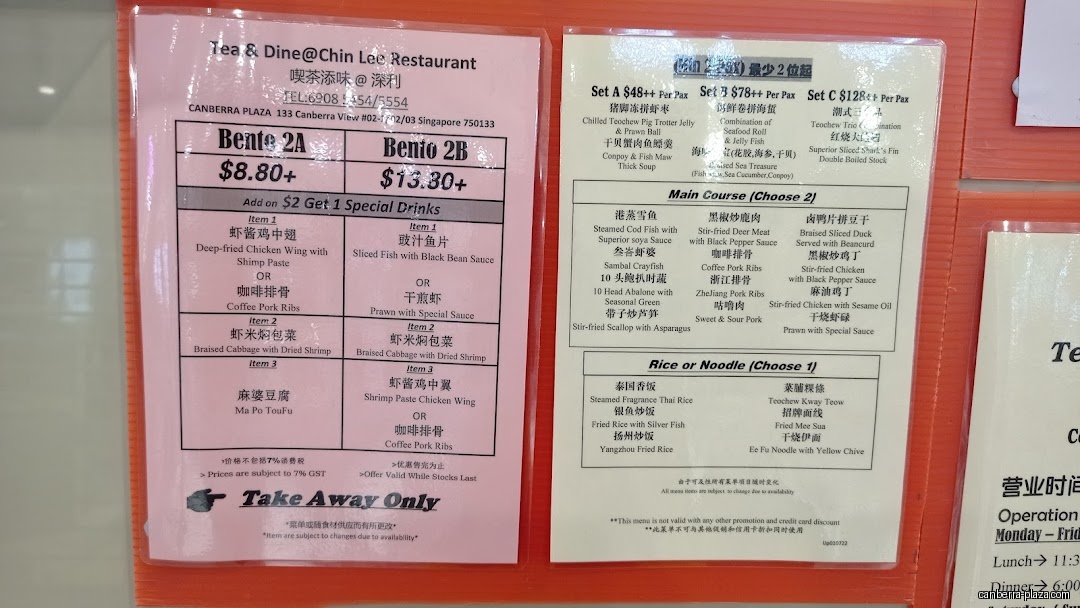 Tea & Dine@Chin Lee Restaurant
喫茶添味 @ 深利
TEL:6908 5554
CANBERRA PLAZA 133 Canberra View #02-02/03 Singapore 750133
Bento 2A
Bento 2B
$8.80+
$13.80+
Add on $2 Get 1 Special Drinks
Item 1
虾酱鸡中翅
Deep-fried Chicken Wing with
Shimp Paste
OR
咖啡排骨
Coffee Pork Ribs
Item 2
虾米焖包菜
Braised Cabbage with Dried Shrimp
Item 3
麻婆豆腐
Ma Po TouFu
Item 1
豉汁鱼片
Sliced Fish with Black Bean Sauce
OR
干煎虾
Prawn with Special Sauce
Item 2
虾米焖包菜
Braised Cabbage with Dried Shrimp
Item 3
虾酱鸡中翼
Shrimp Paste Chicken Wing
OR
咖啡排骨
Coffee Pork Ribs
›价格不包括7%消费税
> Prices are subject to 7% GST
>优惠售完为止
>Offer Valid While Stocks Last
Take Away Only
*菜单或随食材供应而有所更改*
*Item are subject to changes due to availability*
(Min 2 Pax) 最少 2 位起
Set A $48++ Per Pax
猪脚冻拼虾枣
Chilled Teochew Pig Trotter Jelly
& Prawn Ball
干贝蟹肉鱼鳔羹
Conpoy & Fish Maw
Thick Soup
Set B $78++ Per Pax
海鲜卷拼海蜇
Combination of
Seafood Roll
& Jelly Fish
(花胶,海参,干贝)
Braised Sea Treasure
(Fish Maw,Sea Cucumber,Conpoy)
Set C $128++ Per Pax
潮式三
Teochew Trio Combination
红烧大
Superior Sliced Shark's Fin
Double Boiled Stock
Main Course (Choose 2)
港蒸雪鱼
Steamed Cod Fish with
Superior soya Sauce
叁峇虾婆
Sambal Crayfish
10 头鲍扒时蔬
10 Head Abalone with
Seasonal Green
带子炒芦笋
Stir-fried Scallop with Asparagus
黑椒炒鹿肉
Stir-fried Deer Meat
with Black Pepper Sauce
咖啡排骨
Coffee Pork Ribs
浙江排骨
ZheJiang Pork Ribs
咕噜肉
Sweet & Sour Pork
卤鸭片拼豆干
Braised Sliced Duck
Served with Beancurd
黑椒炒鸡丁
Stir-fried Chicken
with Black Pepper Sauce
麻油鸡丁
Stir-fried Chicken with Sesame Oil
干烧虾碌
Prawn with Special Sauce
Rice or Noodle (Choose 1)
泰国香饭
Steamed Fragrance Thai Rice
银鱼炒饭
Fried Rice with Silver Fish
扬州炒饭
Yangzhou Fried Rice
菜脯粿條
Teochew Kway Teow
招牌面线
Fried Mee Sua
干烧伊面
Ee Fu Noodle with Yellow Chive
由于可及性所有菜单项目随时变化
All menu items are subject to change due to availability
**This menu is not valid with any other promotion and credit card discount
**此菜单不可与其他促销和信用卡折扣同时使用
Up010722
Te
营业时间
Operation
Monday – Frid
Lunch→ 11:3
Dinner→ 6:00
canberra-plaza.com